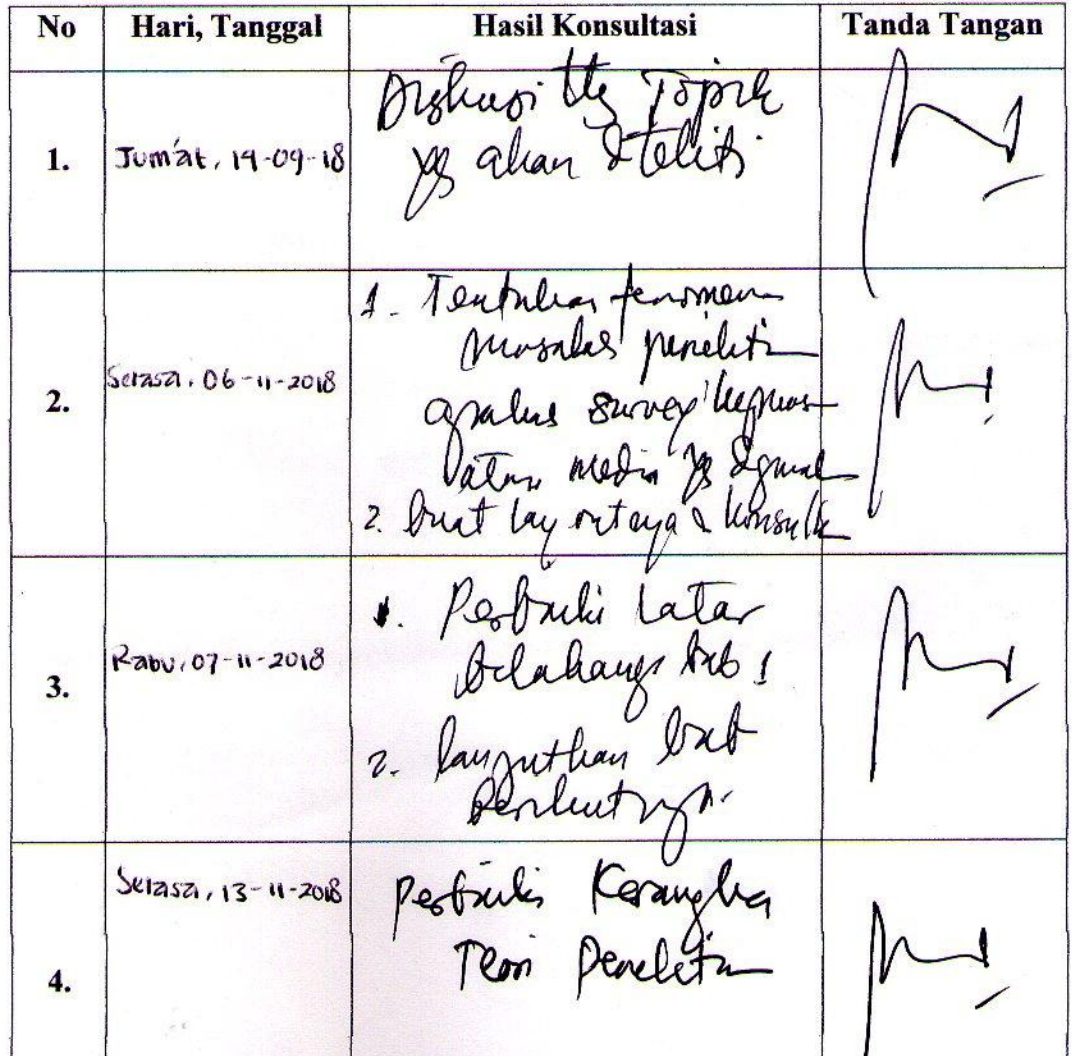 No Hari, Tanggal Hasil Konsultasi Tanda Tangan
1. Jum'at, 14-09-18
Diskusi ttg Topik
yg akan diteliti
2. Selasa, 06-11-2018
1. Tentukan fenomena
masalah penelitian
apakah survey kepuas
atau media yg digunak
2. buat lay outnya & konsulk
3. Rabu, 07-11-2018
1. Perbaiki latar
belakang bab 1
2. lanjutkan bab
berikutnya.
4. Selasa, 13-11-2018
Perbaiki Kerangka
Teori Penelitian